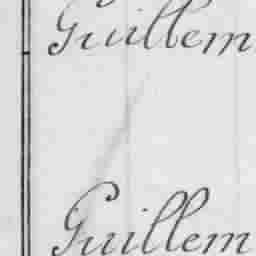 Guillem
Guillem